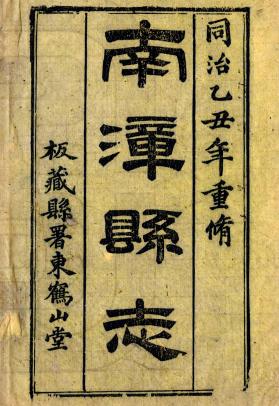 同治乙丑年重脩
南漳縣志
板藏縣署東鶴山堂